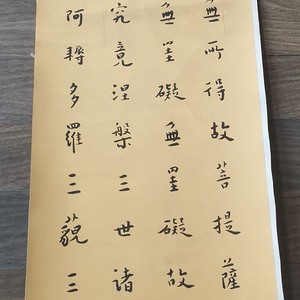 無所得故菩提薩
無罣礙無罣礙故
究竟涅槃三世諸
阿耨多羅三藐三